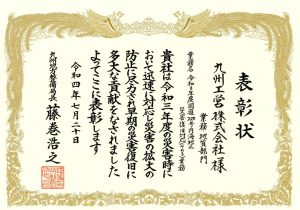 表彰状
業務 地質部門
九州工営株式会社 様
業務名 令和２年度国道
貴社は令和三年度の災害時に
おいて迅速に対応し災害の拡大の
防止に尽力され早期の災害復旧に
多大な貢献をなされました
よってここに表彰します
令和四年七月二十日
九州地方整備局長 藤巻浩之